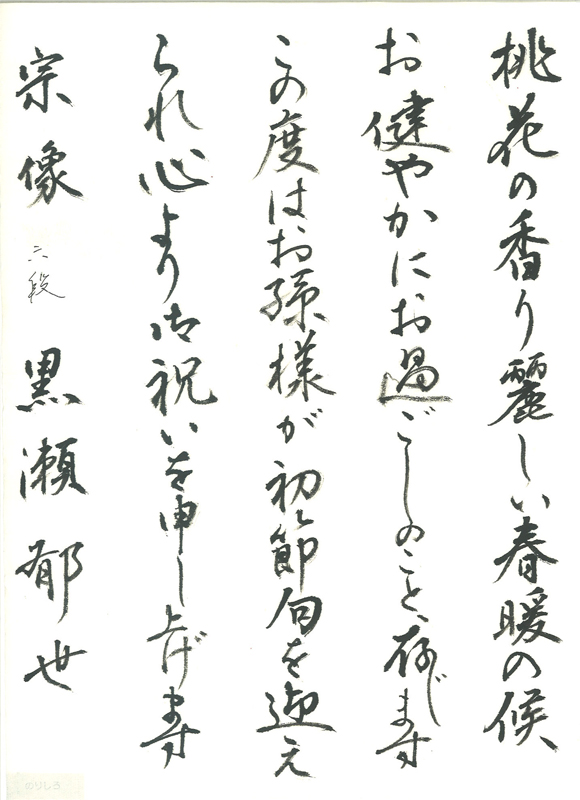 桃花の香り麗しい春暖の候
お健やかにお過ごしのことゝ存じます
この度はお孫様が初節句を迎え
られ心より御祝いを申し上げます
宗像 六段 黒瀬郁世
のりしろ